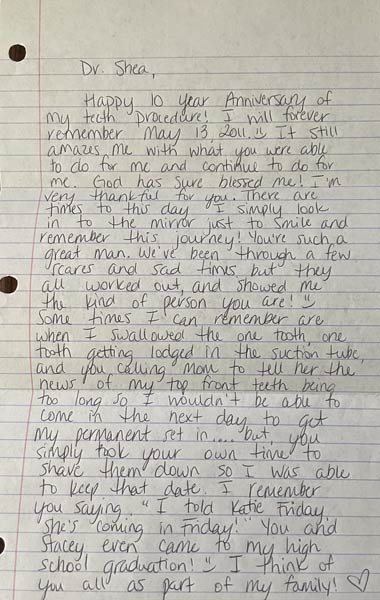 Dr. Shea,
Happy 10 year Anniversary of
my teeth Procedure! I will forever
remember May 13, 2011. :) It still
amazes me with what you were able
to do for me and continue to do for
me. God has sure blessed me! I'm
very thankful for you. There are
times to this day I simply look
in to the mirror just to smile and
remember this journey! You're such a
great man. We've been through a few
scares and sad times but they
all worked out, and showed me
the kind of person you are! :)
Some times I can remember are
when I swallowed the one tooth, one
tooth getting lodged in the suction tube,
and you calling Mom to tell her the
news of my top front teeth being
too long so I wouldn't be able to
come in the next day to get
my permanent set in.... but, you
simply took your own time to
shave them down so I was able
to keep that date. I remember
you saying, "I told Katie Friday,
She's coming in Friday!" You and
Stacey even came to my high
school graduation! :) I think of
you all as part of my family! ♡